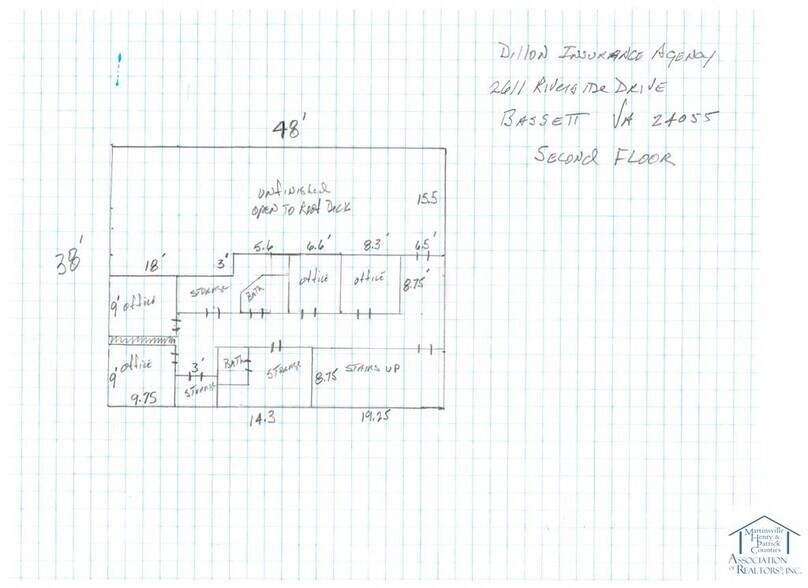 Dillon Insurance Agency
2611 Riverside Drive
Bassett VA 24055
Second Floor
48'
unfinished
open to Roof Deck
15.5
38'
18'
3'
5.6
6.6'
8.3'
6.5'
9' office
Storage
Bath
office
office
8.75'
9' office
9.75
3'
Storage
Bath
Storage
8.75
Stairs up
14.3
19.25
Martinsville
Henry &
Patrick
Counties
Association
of Realtors®, Inc.